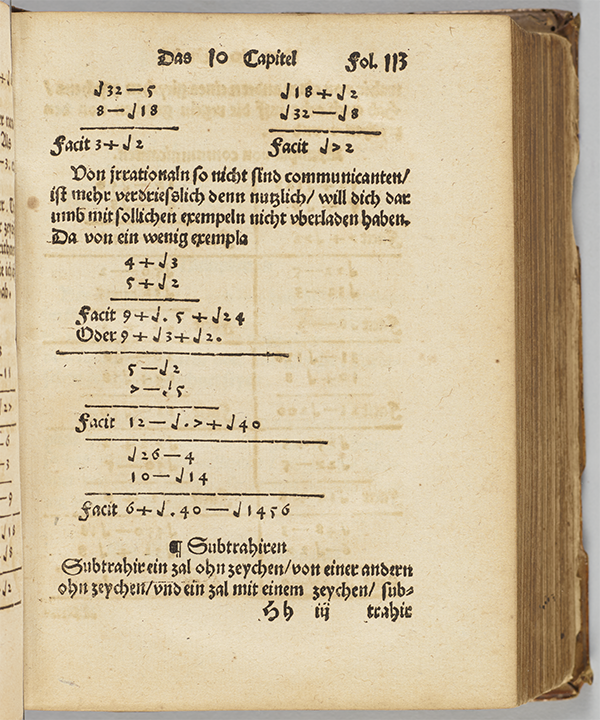 Das 10 Capitel Fol. 113
√32—5 √18+√2
8—√18 √32—√8
Facit 3+√2 Facit √>2
Von jrrationaln so nicht sind communicanten/
ist mehr verdriesslich denn nutzlich/ will dich dar
umb mit sollichen exempeln nicht vberladen haben.
Da von ein wenig exempla
4+√3
5+√2
Facit 9+√. 5 +√24
Oder 9+√3+√2.
5—√2
>—√5
Facit 12—√.>+√40
√26—4
10—√14
Facit 6+√.40—√1456
¶ Subtrahiren
Subtrahir ein zal ohn zeychen/von einer andern
ohn zeychen/vnd ein zal mit einem zeychen/ sub-
Hh iij trahir